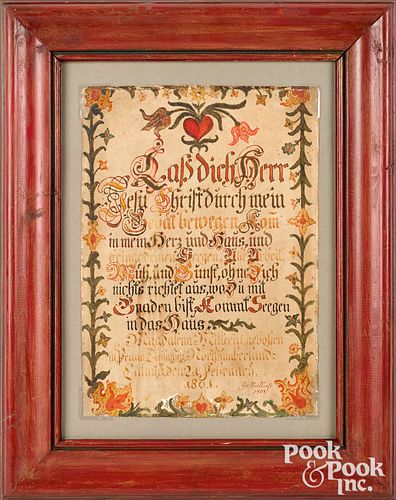 Laß dich Herr
Jesu Christ durch mein
Gebät bewegen, Kom̅
in mein Herz und Haus, und
bringe deinen Seegen. All Arbeit,
Müh, und Gunst, ohne Dich
nichts richtet aus, wo du mit
Gnaden bist, Kommt Seegen
in das Haus.
geboren
in
den
1801.
1801
POOK
& POOK
INC.